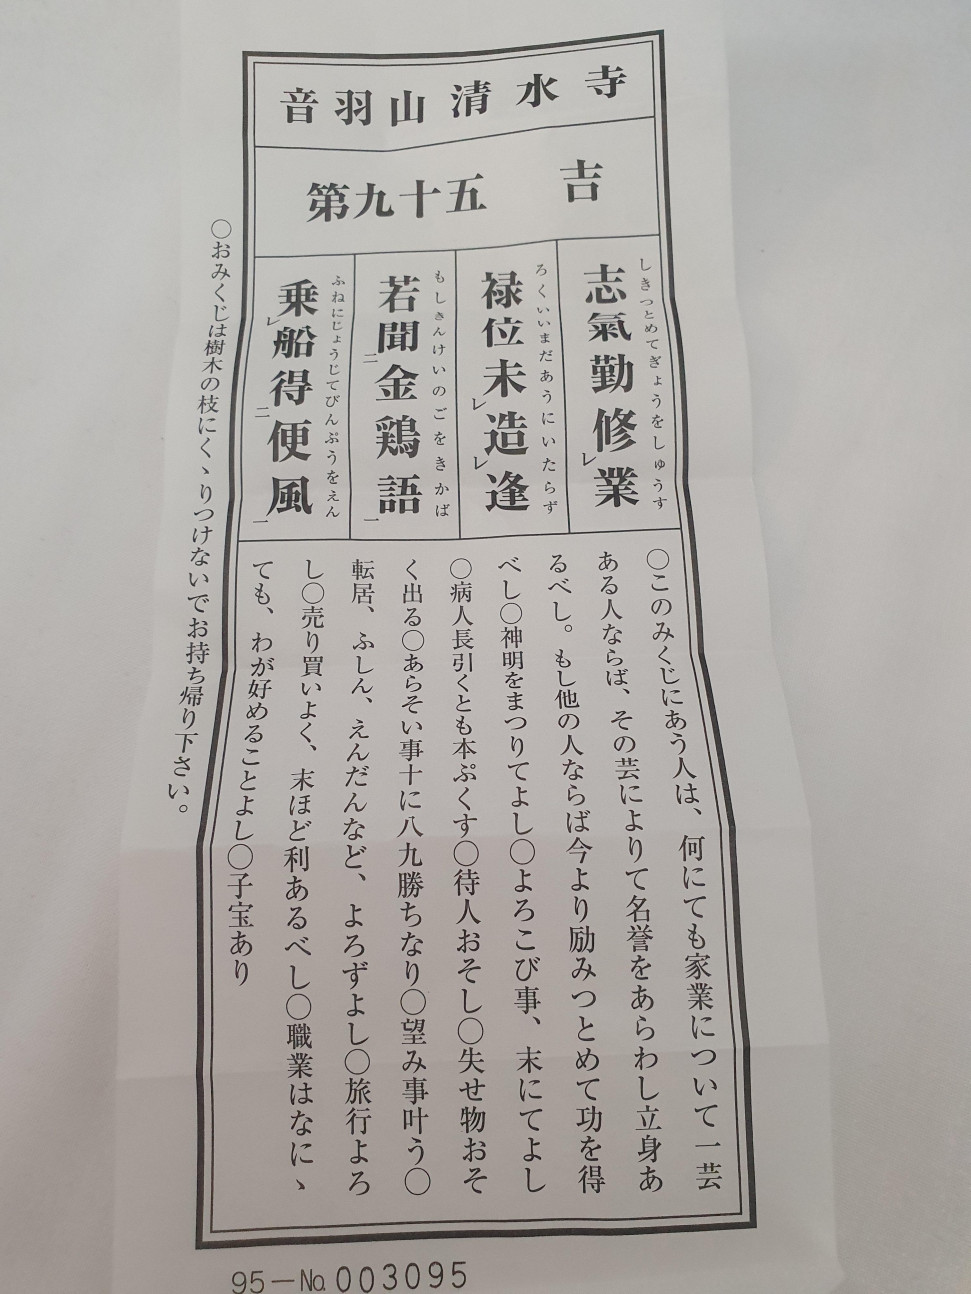 音羽山清水寺
第九十五 吉
しきつとめてぎょうをしゅうす
志氣勤修レ業
ろくいいまだあうにいたらず
禄位未レ造レ逢
もしきんけいのごをきかば
若聞二金鶏語一
ふねにじょうじてびんぷうをえん
乗レ船得二便風一
○このみくじにあう人は、何にても家業について一芸
ある人ならば、その芸によりて名誉をあらわし立身あ
るべし。もし他の人ならば今より励みつとめて功を得
べし○神明をまつりてよし○よろこび事、末にてよし
○病人長引くとも本ぷくす○待人おそし○失せ物おそ
く出る○あらそい事十に八九勝ちなり○望み事叶う○
転居、ふしん、えんだんなど、よろずよし○旅行よろ
し○売り買いよく、末ほど利あるべし○職業はなにゝ
ても、わが好めることよし○子宝あり
○おみくじは樹木の枝にくゝりつけないでお持ち帰り下さい。
95－№003095